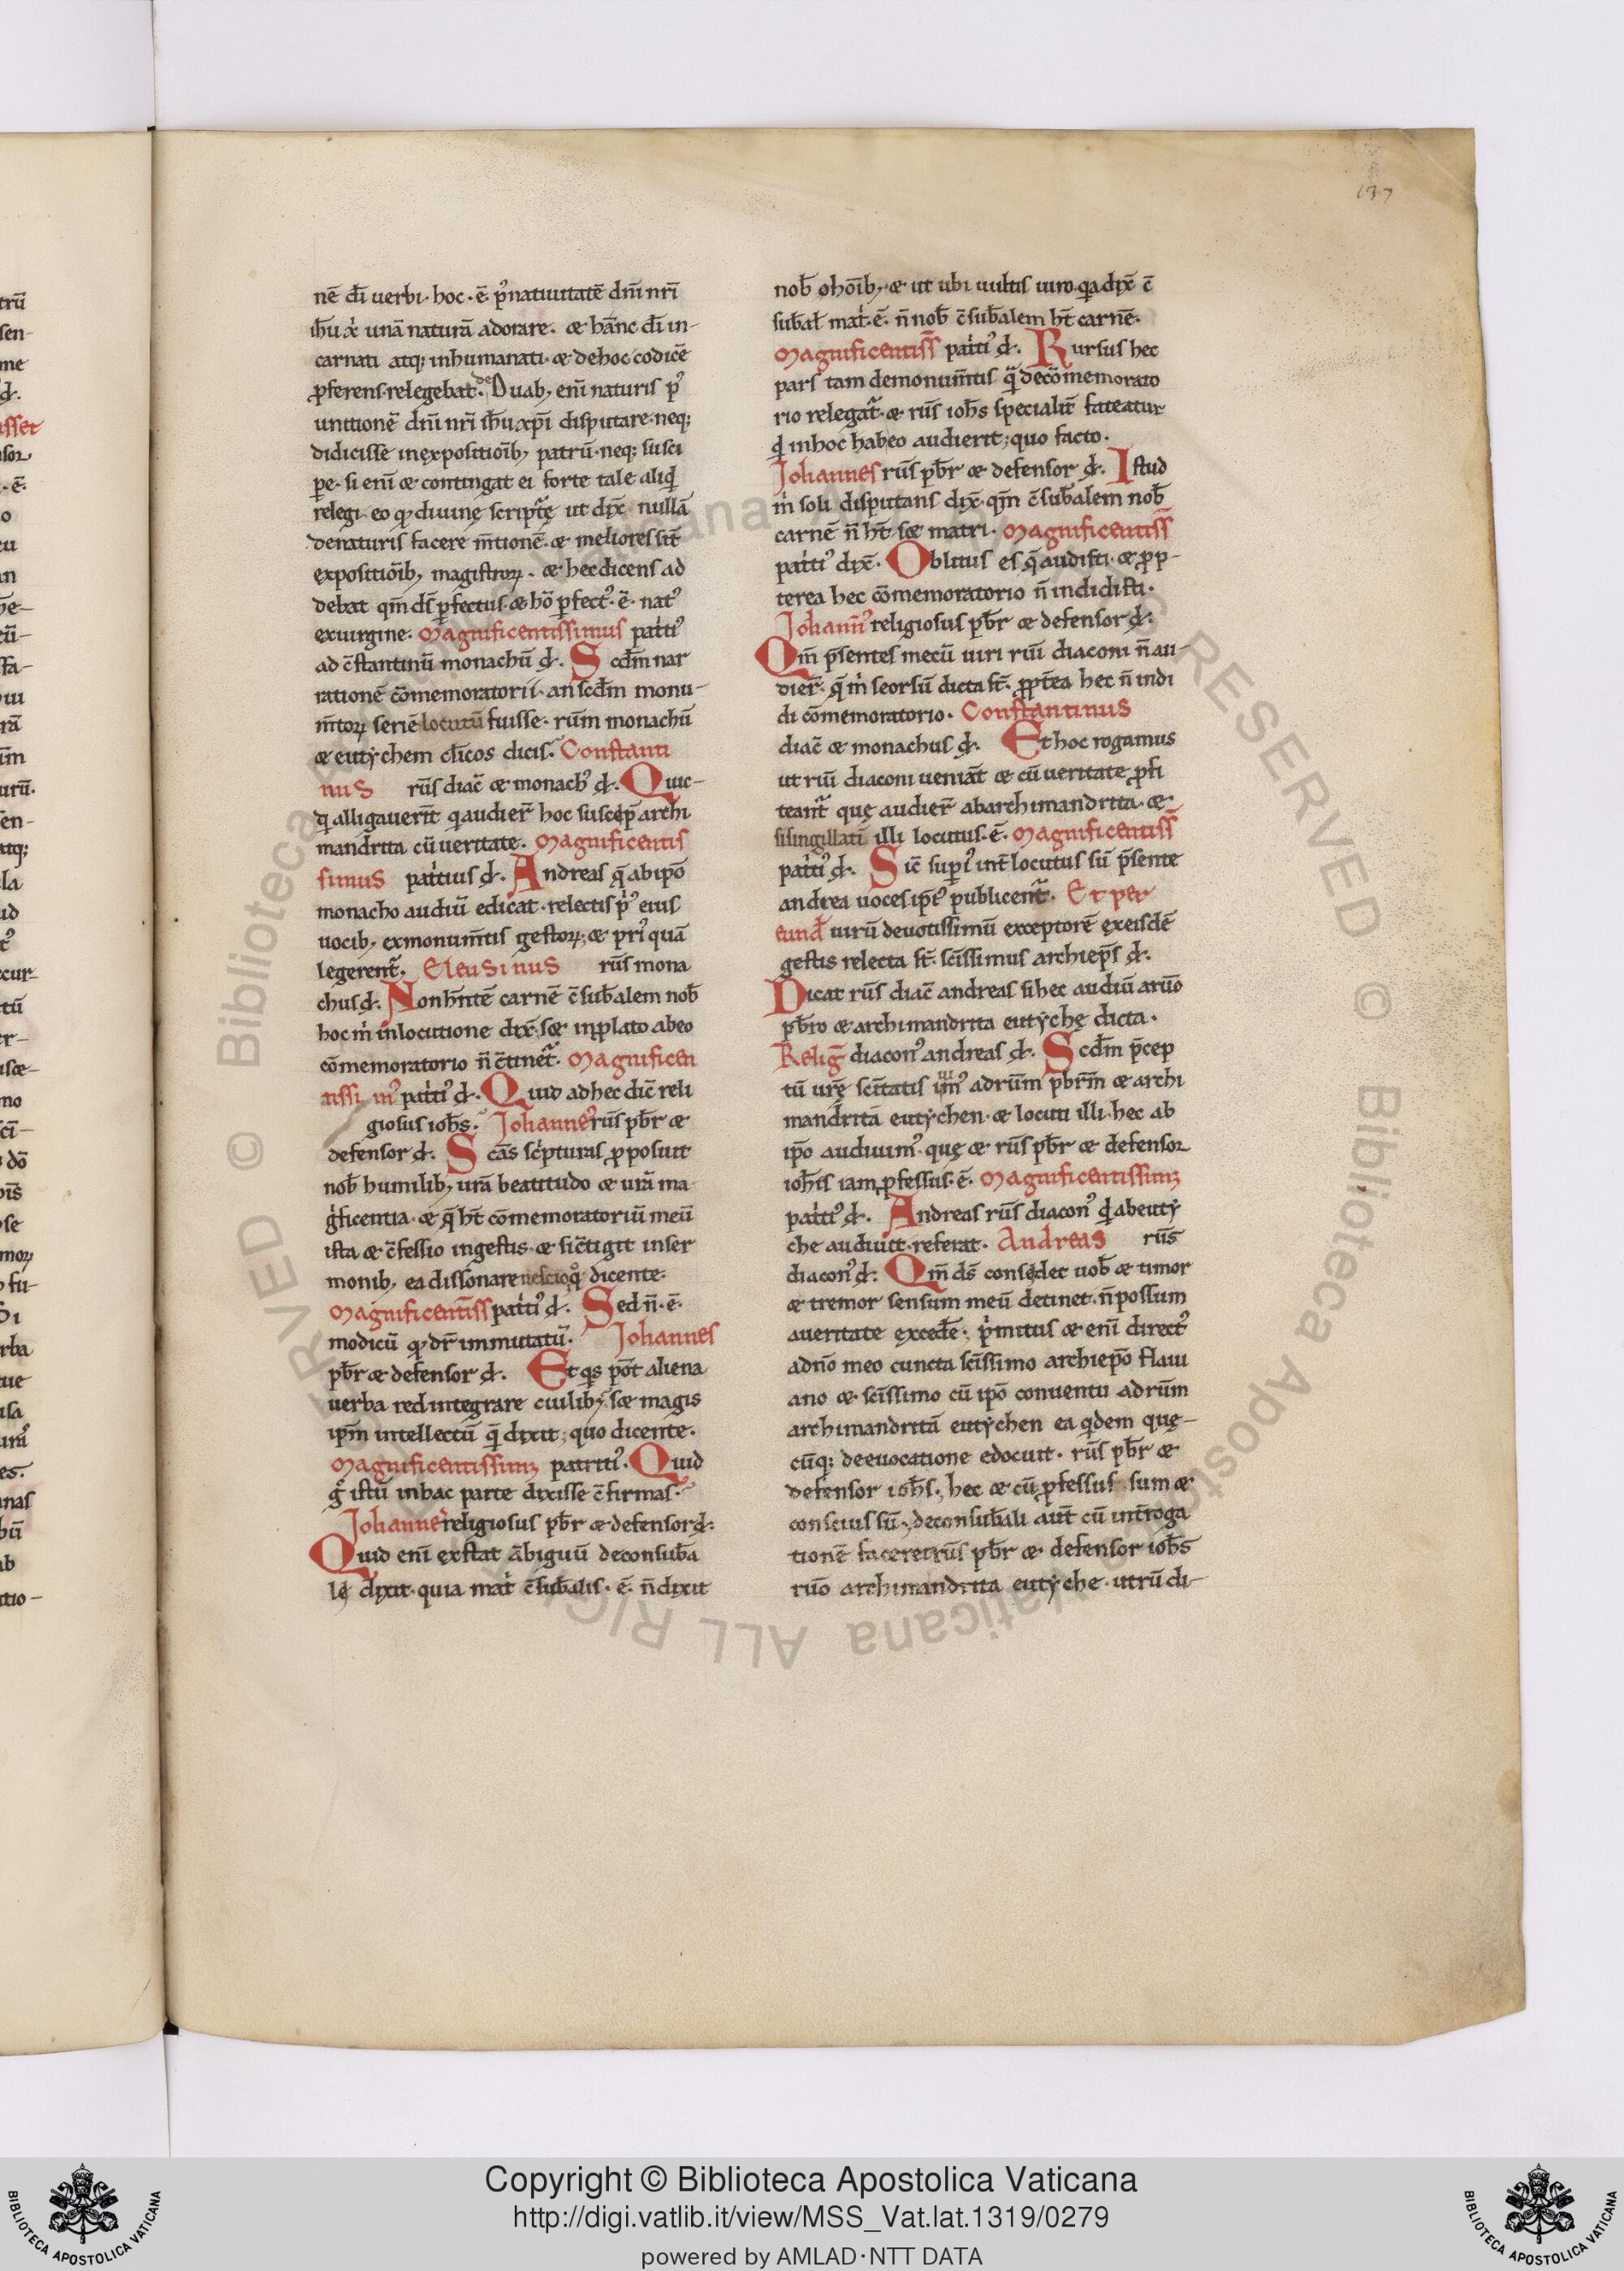 137
nē dī uerbi· hoc· ē· p᷒ natiuitatē dn̄i nr̄i
ih̄u xp̄i unā naturā adorare· & hānc dī in-
carnati atq; inhumanati· & dehoc codicē
p̄ferens· relegebat· de Duab, enī naturis p᷒
unitionē dn̄i nr̄i ih̄u xp̄i disputare· neq;
didicisse inexpositiōib, patrū· neq; susci
pe· si enī & contingat ei forte tale aliqd
relegi· eo qd diuinę script̄ę ut dix̄ nullā
denaturis facere m̄tionē· & meliores sit̄
expositiōib, magistroꝝ· & hecdicens ad
debat qm̄ ds̄ pfectus· & hō pfect᷒· ē· nat᷒
exuirgine· Magnificentissimus patri᷒
ad c̄stantinū monachū d̄· Scd̄m nar
rationē cōmemoratorii· an scd̄m monu-
m̄toꝝ seriē locutū fuisse· rūm monachū
& eutychem cl̄icos dicis· Constanti
nus rūs diac̄ & monach᷒ d̄· Quic-
qd alligauerīt qd audier̄ hoc suscep̄ archi
mandrita cū ueritate· Magnificentis
simus patrius d̄· Andreas q̄ ab ipō
monacho audiū edicat· relectis p᷒ eius
uocib, exmonum̄tis gestoꝝ; & pri᷒ quā
legerent̄· Eleusinus rūs mona
chus d̄· Non hn̄tē carnē c̄sub̄alem nob̄
hoc m̄ inlocutione dix̄· s& inplato abeo
cōmemoratorio n̄ c̄tinet̄· Magnificen
tissim᷒ patri᷒ d̄· Quid adhec dic̄ reli
giosus ioh̄s· Johanne᷒ rūs pb̄r &
defensor d̄· Scās sc̄pturas pposuit
nob̄ humilib, urā beatitudo & urā ma
gficentia· & q̄ ht̄ cōmemoratoriū meū
ista & c̄fessio ingestis· & sic̄tigit inser
monib, ea dissonare nescio qō dicente·
Magnificentiss̄ patri᷒ d̄· Sed n̄· ē·
modicū qd dr̄ immutatū· Johannes
pb̄r & defensor d̄· Et qs pōt aliena
uerba redintegrare ciuilib᷒, s& magis
ipm̄ intellectū q̄ dixit; quo dicente·
Magnificentissimꝫ patriti᷒· Quid
g̊ istū inhac parte dixisse c̄firmas·
Johanne᷒ religiosus pb̄r & defensor d̄·
Quid enī exstat ābiguū deconsub̄a
lę dixit· quia mat̄ c̄sub̄alis· ē· n̄ dixit
nob̄ ohōib,· & ut ubi uultis iuro qa dix̄ c̄
sub̄al̄ mat̄· ē· n̄ nob̄ c̄sub̄alem ht̄ carnē·
Magnificentiss̄ patri᷒ d̄· Rursus hec
pars tam demonum̄tis q̄ decōmemorato
rio relegat̄· & rūs ioh̄s specialit̄ fateatur
qd inhoc habeo audierit; quo facto·
Johannes rūs pb̄r & defensor d̄· Istud
m̄ soli disputans dix̄· qm̄ c̄sub̄alem nob̄
carnē n̄ ht̄· s& matri· Magnificentiss̄
patri᷒ dix̄· Oblitus es q̄ audisti· & prop-
terea hec cōmemoratorio n̄ indidisti·
Johann᷒ religiosus pb̄r & defensor d̄:
Qm̄ p̄sentes mecū uiri riū diaconi n̄ au-
dier̄· q̄ m̄ seorsū dicta st̄· ppt̄ea hec n̄ indi
di cōmemoratorio· Constantinus
diac̄ & monachus d̄· Et hoc rogamus
ut riū diaconi ueniāt & cū ueritate pfi
teant̄ quę audier̄ abarchimandrita· &
si singillatī illi locutus· ē· Magnificentiss̄
patri᷒ d̄· Sic̄ superi᷒ int̄locutus sū p̄sente
andrea uoces ips᷒ publicent̄· Et per
eund̄ uirū deuotissimū exceptorē exeisdē
gestis relecta st̄· sc̄issimus archiep̄s d̄·
Dicat rūs diac̄ andreas si hec audiū aruō
pb̄ro & archimandrita eutychę dicta·
Reliḡ diacon᷒ andreas d̄· Scd̄m p̄cep
tū urę sc̄itatis iuim᷒ adrūm pbrm̄ & archi
mandritā eutychen· & locuti illi· hec ab
ipō audiuim᷒· quę & rūs pb̄r & defensor
ioh̄is iam pfessus· ē· Magnificentissimꝫ
patri᷒ d̄· Andreas rūs diacon᷒ qd abeuty
che audiuit· referat· Andreas rūs
diacon᷒ d̄: Qm̄ ds̄ consędet uob̄ & timor
& tremor sensum meū detinet· n̄ possum
aueritate exced̄e· p̄mitus & enī direct᷒
adn̄o meo cuncta sc̄issimo archiep̄o flaui
ano &· sc̄issimo cū ipō conuentu adrūm
archimandritā eutychen ea qdem quę-
cūq; deeuocatione edocuit· rūs pb̄r &
defensor ioh̄s·, hec & cū pfessus sum &
conscius sū·, deconsub̄ali aut̄ cū int̄roga
tionē faceret rūs pb̄r & defensor ioh̄s
ruō archimandrita eutyche· utrū di-
Copyright © Biblioteca Apostolica Vaticana
http://digi.vatlib.it/view/MSS_Vat.lat.1319/0279
powered by AMLAD·NTT DATA